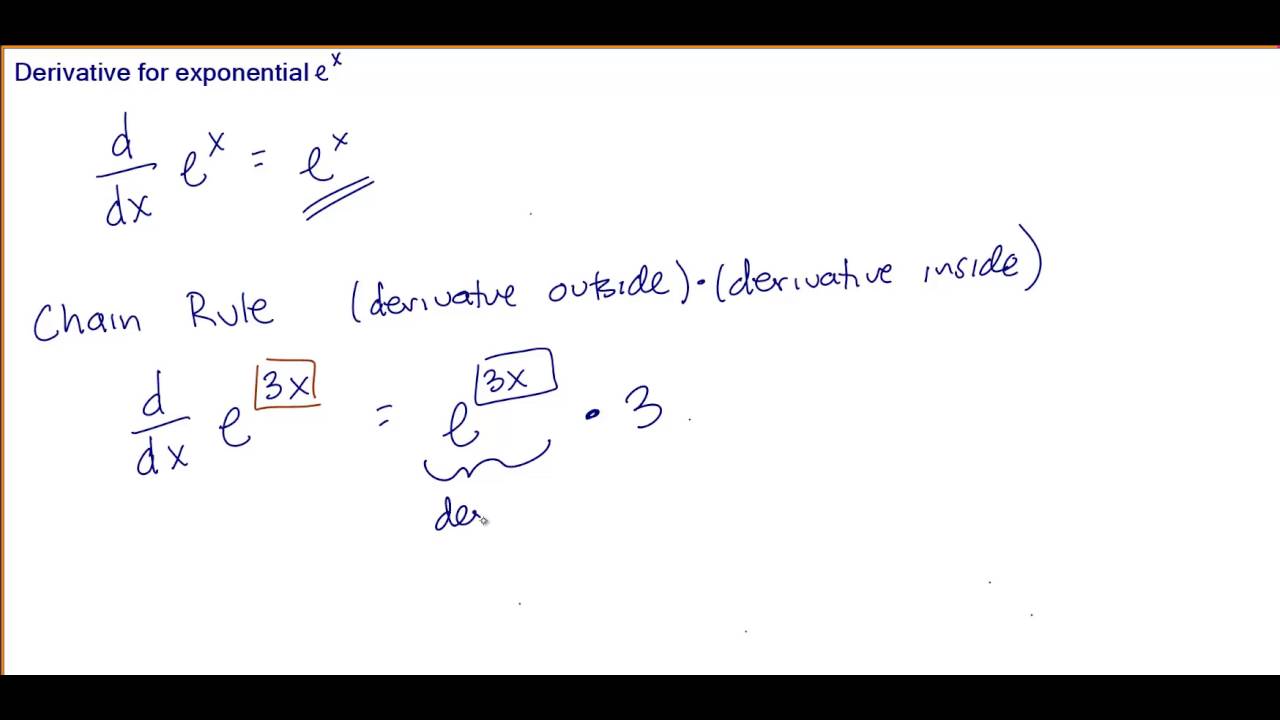 Derivative for exponential e^x
d/dx e^x = e^x
Chain Rule (derivative outside)·(derivative inside)
d/dx e^3x = e^3x · 3
der